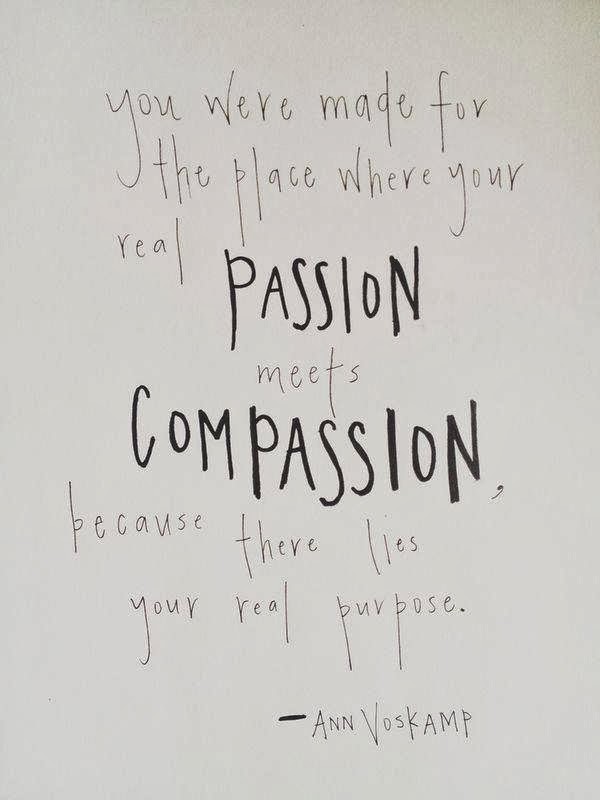 you were made for
the place where your
real PASSION
meets
COMPASSION,
because there lies
your real purpose.
— ANN VOSKAMP